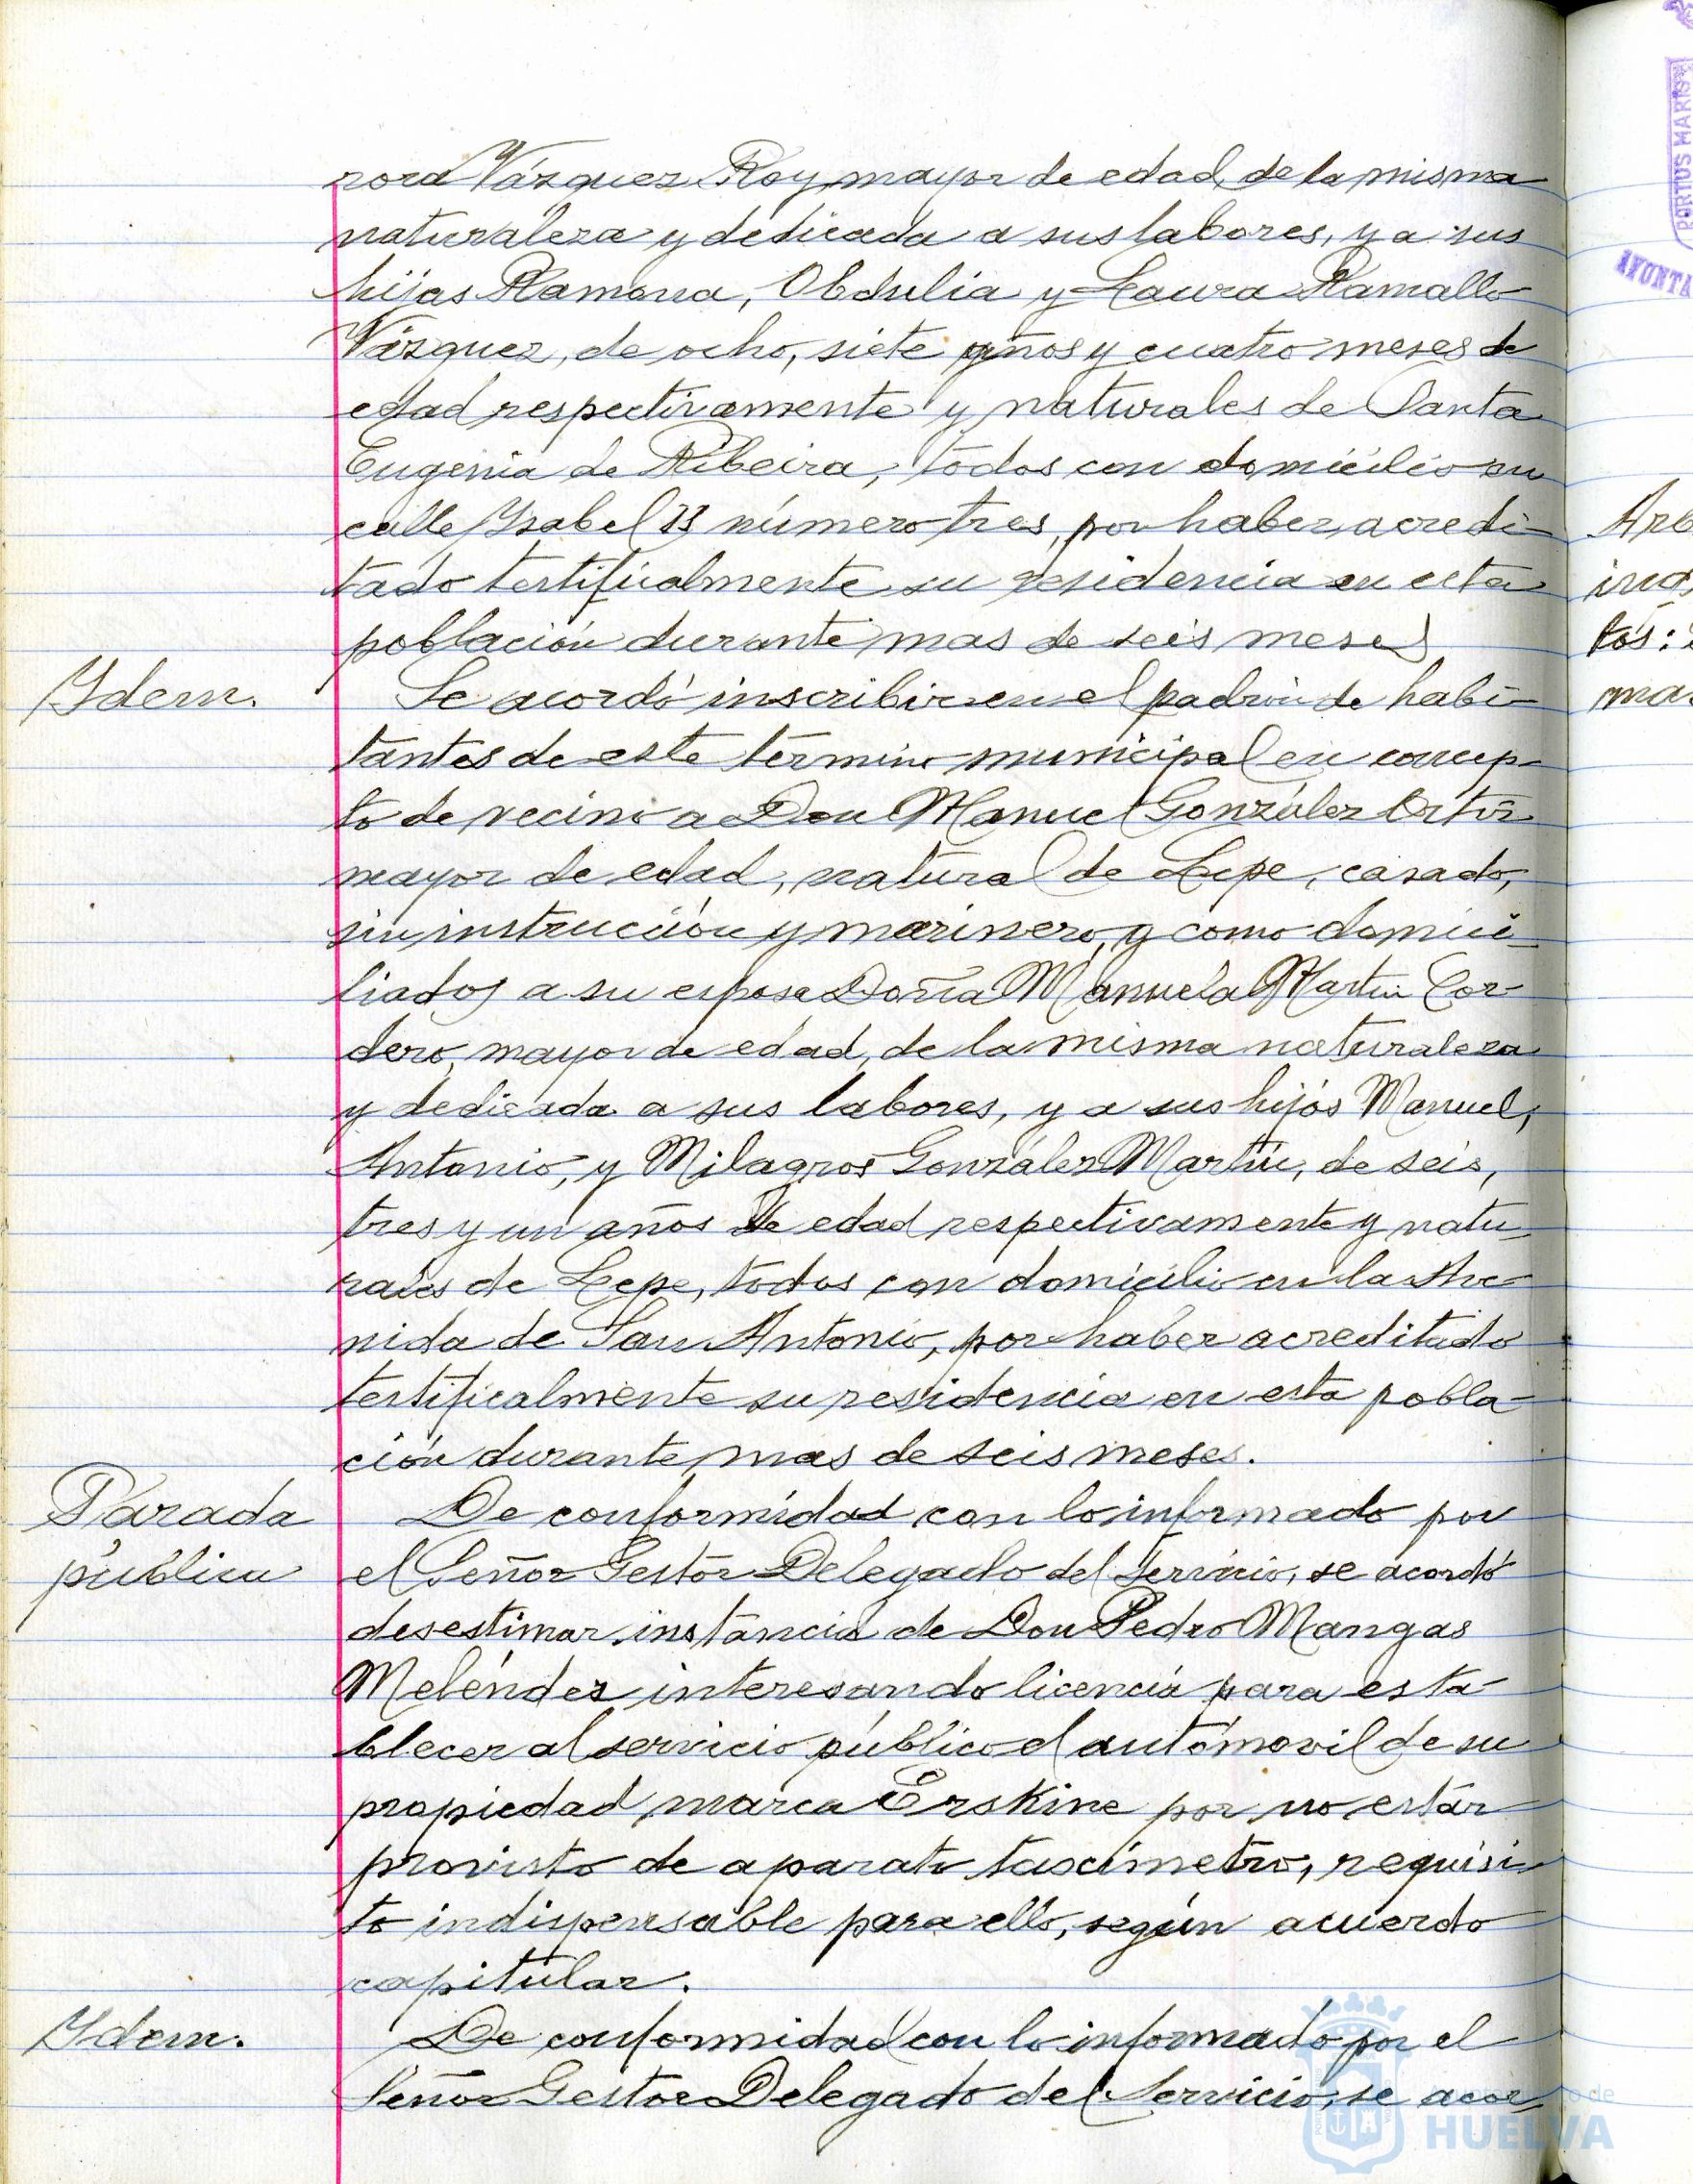 nora Vázquez Roy, mayor de edad, de la misma
naturaleza y dedicada a sus labores, y a sus
hijas Ramona, Obdulia y Laura Ramallo
Vázquez, de ocho, siete años y cuatro meses de
edad respectivamente y naturales de Santa
Eugenia de Ribeira, todos con domicilio en
calle Ysabel II número tres, por haber acredi-
tado testificalmente su residencia en esta
población durante mas de seis meses
Ydem.
Se acordó inscribir en el padrón de habi-
tantes de este término municipal en concep-
to de vecino a Don Manuel González
mayor de edad, natural de Lepe, casado,
sin instrucción y marinero, y como domici-
liados a su esposa Doña Manuela Martín Cor-
dero, mayor de edad, de la misma naturaleza
y dedicada a sus labores, y a sus hijos Manuel,
Antonio, y Milagros González Martín, de seis,
tres y un años de edad respectivamente y natu-
rales de Lepe, todos con domicilio en la Ave-
nida de San Antonio, por haber acreditado
testificalmente su residencia en esta pobla-
ción durante mas de seis meses.
Parada
pública
De conformidad con lo informado por
el Señor Gestor Delegado del Servicio, se acordó
desestimar instancia de Don Pedro Mangas
Meléndez interesando licencia para esta-
blecer al servicio público el automovil de su
propiedad marca Erskine por no estár
provisto de aparato taxímetro, requisi-
to indispensable para ello, según acuerdo
capitular.
Ydem.
De conformidad con lo informado por el
Señor Gestor Delegado del Servicio, se acor-
PORTUS MARIS
AYUNTA
Arb
inq
tos:
ma
de
HUELVA